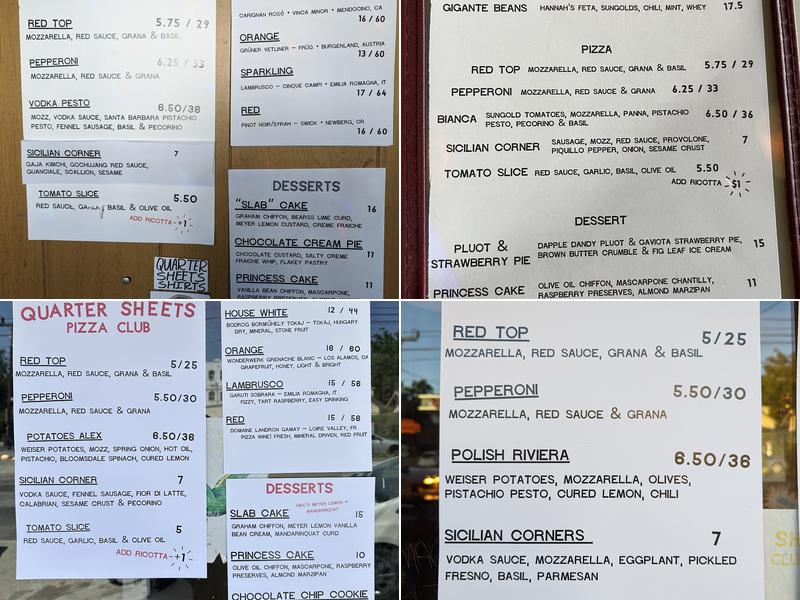 RED TOP 5.75 / 29
MOZZARELLA, RED SAUCE, GRANA & BASIL
PEPPERONI 6.25 / 33
MOZZARELLA, RED SAUCE & GRANA
VODKA PESTO 6.50/36
MOZZ, VODKA SAUCE, SANTA BARBARA PISTACHIO
PESTO, FENNEL SAUSAGE, BASIL & PECORINO
SICILIAN CORNER 7
GAJA KIMCHI, GOCHUJANG RED SAUCE,
GUANCIALE, SCALLION, SESAME
TOMATO SLICE 5.50
RED SAUCE, GARLIC, BASIL & OLIVE OIL
ADD RICOTTA +1
QUARTER
SHEETS
SHIRTS
CARIGNAN ROSÉ • VINCA MINOR • MENDOCINO, CA
16 / 60
ORANGE
GRÜNER VETLINER – FRÜG • BURGENLAND, AUSTRIA
13 / 60
SPARKLING
LAMBRUSCO – CINQUE CAMPI • EMILIA ROMAGNA, IT
17 / 64
RED
PINOT NOIR/SYRAH – SWICK • NEWBERG, OR
16 / 60
DESSERTS
"SLAB" CAKE 16
GRAHAM CHIFFON, BEARSS LIME CURD,
MEYER LEMON CUSTARD, CREME FRAICHE
CHOCOLATE CREAM PIE 11
CHOCOLATE CUSTARD, SALTY CREME
FRAICHE WHIP, FLAKEY PASTRY
PRINCESS CAKE 11
VANILLA BEAN CHIFFON, MASCARPONE,
RASPBERRY PRESERVES, ALMOND
GIGANTE BEANS HANNAH'S FETA, SUNGOLDS, CHILI, MINT, WHEY 17.5
PIZZA
RED TOP MOZZARELLA, RED SAUCE, GRANA & BASIL 5.75 / 29
PEPPERONI MOZZARELLA, RED SAUCE & GRANA 6.25 / 33
BIANCA SUNGOLD TOMATOES, MOZZARELLA, PANNA, PISTACHIO 6.50 / 36
PESTO, PECORINO & BASIL
SICILIAN CORNER SAUSAGE, MOZZ, RED SAUCE, PROVOLONE, 7
PIQUILLO PEPPER, ONION, SESAME CRUST
TOMATO SLICE RED SAUCE, GARLIC, BASIL, OLIVE OIL 5.50
ADD RICOTTA $1
DESSERT
PLUOT & STRAWBERRY PIE DAPPLE DANDY PLUOT & GAVIOTA STRAWBERRY PIE, 15
BROWN BUTTER CRUMBLE & FIG LEAF ICE CREAM
PRINCESS CAKE OLIVE OIL CHIFFON, MASCARPONE CHANTILLY, 11
RASPBERRY PRESERVES, ALMOND MARZIPAN
QUARTER SHEETS
PIZZA CLUB
RED TOP 5/25
MOZZARELLA, RED SAUCE, GRANA & BASIL
PEPPERONI 5.50/30
MOZZARELLA, RED SAUCE & GRANA
POTATOES ALEX 6.50/36
WEISER POTATOES, MOZZ, SPRING ONION, HOT OIL,
PISTACHIO, BLOOMSDALE SPINACH, CURED LEMON
SICILIAN CORNER 7
VODKA SAUCE, FENNEL SAUSAGE, FIOR DI LATTE,
CALABRIAN, SESAME CRUST & PECORINO
TOMATO SLICE 5
RED SAUCE, GARLIC, BASIL & OLIVE OIL
ADD RICOTTA +1
HOUSE WHITE 12 / 44
BODROG BORMŰHELY TOKAJ – TOKAJ, HUNGARY
DRY, MINERAL, STONE FRUIT
ORANGE 16 / 60
WONDERWERK GRENACHE BLANC – LOS ALAMOS, CA
GRAPEFRUIT, HONEY, LIGHT & BRIGHT
LAMBRUSCO 15 / 56
GARUTI SORBARA – EMILIA ROMAGNA, IT
FIZZY, TART RASPBERRY, EASY DRINKING
RED 15 / 56
DOMAINE LANDRON GAMAY – LOIRE VALLEY, FR
PIZZA WINE! FRESH, MINERAL DRIVEN, RED FRUIT
DESSERTS
SLAB CAKE 15
GRAHAM CHIFFON, MEYER LEMON VANILLA
BEAN CREAM, MANDARINQUAT CURD
PRINCESS CAKE 10
OLIVE OIL CHIFFON, MASCARPONE, RASPBERRY
PRESERVES, ALMOND MARZIPAN
CHOCOLATE CHIP COOKIE
RED TOP 5/25
MOZZARELLA, RED SAUCE, GRANA & BASIL
PEPPERONI 5.50/30
MOZZARELLA, RED SAUCE & GRANA
POLISH RIVIERA 6.50/36
WEISER POTATOES, MOZZARELLA, OLIVES,
PISTACHIO PESTO, CURED LEMON, CHILI
SICILIAN CORNERS 7
VODKA SAUCE, MOZZARELLA, EGGPLANT, PICKLED
FRESNO, BASIL, PARMESAN